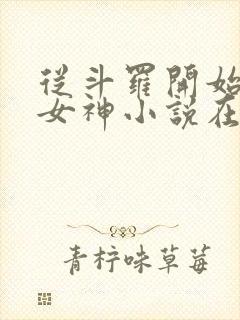 從斗羅開始
女神小說在
青柠味草莓